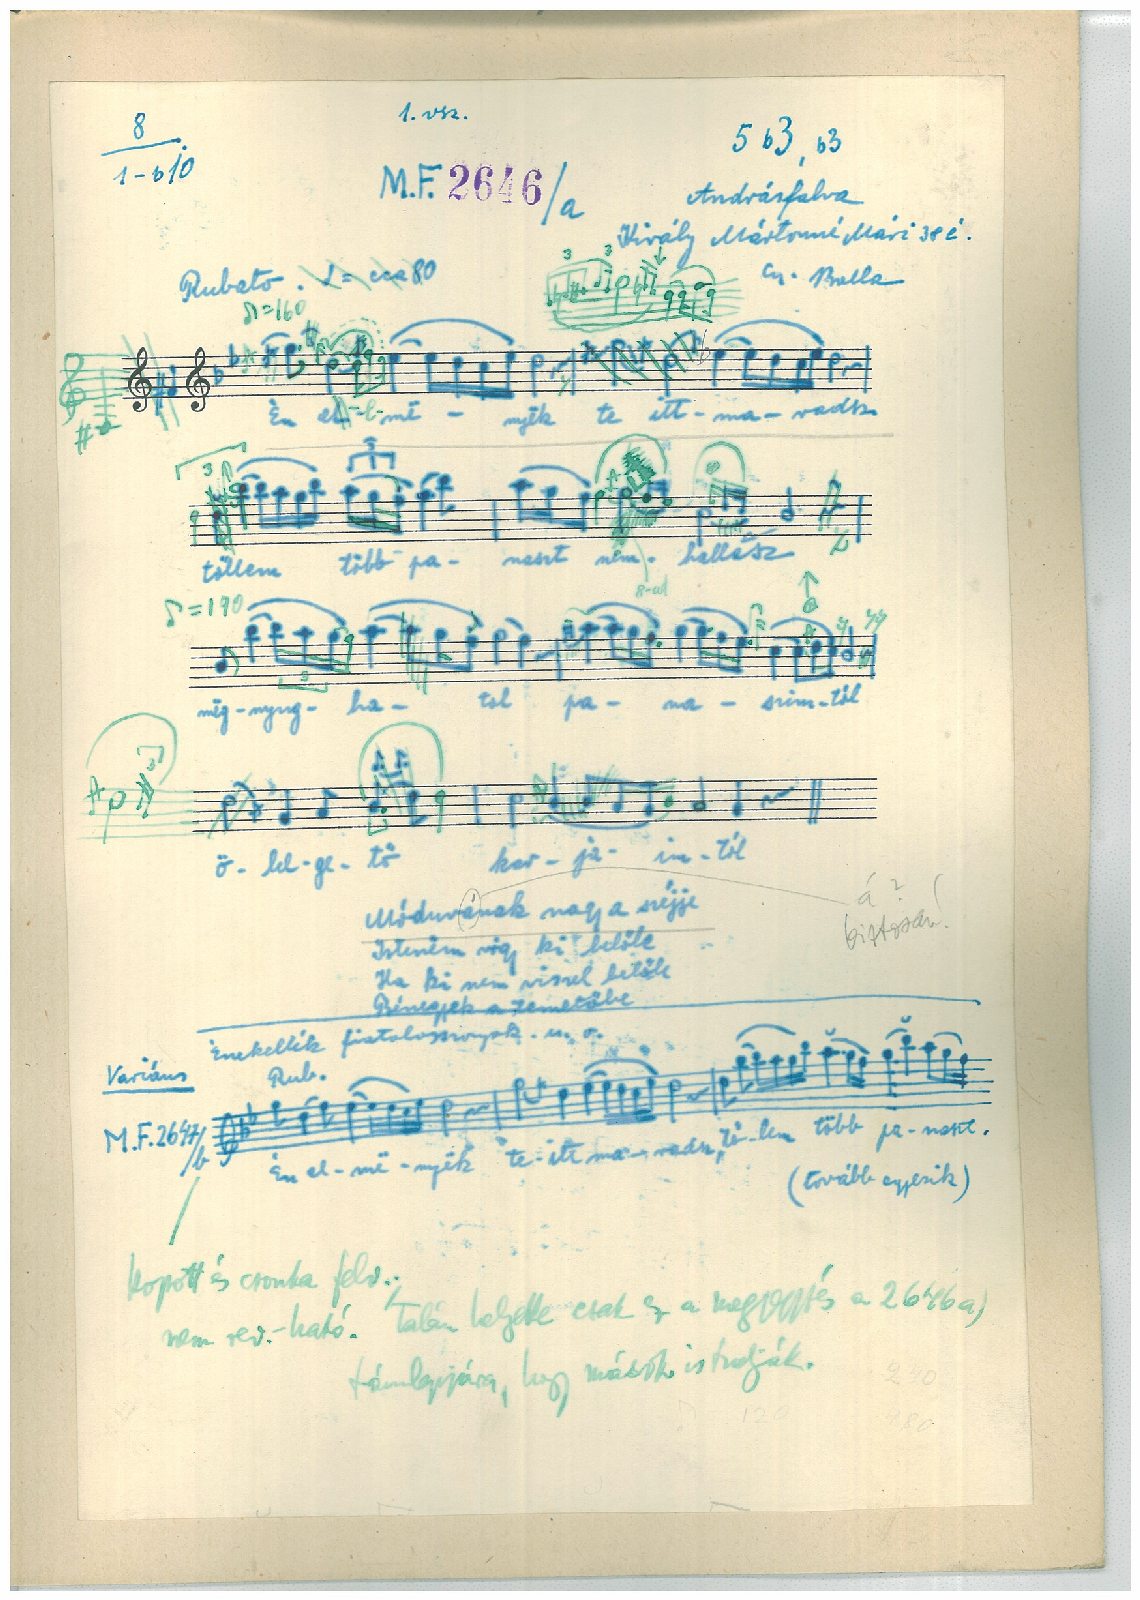 8
1-b10
1. vsz.
5 b3, b3
M.F. 2646/a
Andrásfalva
Király Mártonné Mári 38 é.
Rubato. ♩= cca 80
Gy. Balla
♪=160
Én el-më-nyëk te itt-ma-radsz
tőllem több pa-naszt nëm-hallasz
♪=190
mëg-nyug-ha-tol pa-na-szim-tól
ö-lel-ge-tő kar-ja-im-tól
Móduvának nagy a széjje
á?
biztosan!
Istenëm vigy ki belőle
Ha ki nem viszel belőle
Bénegyek a temetőbe
Énekellik fiatalosszonyok. u. o.
Variáns
Rub.
M.F. 2647/b
Én el-më-nyëk te-itt ma-radsz, tő-lem több pa-naszt.
(tovább egyezik)
Kopott és csonka felv.,
nem rev.-ható. Talán helyette csak ez a megjegyzés a 2646a)
támlapjára, hogy mások is tudják.
120